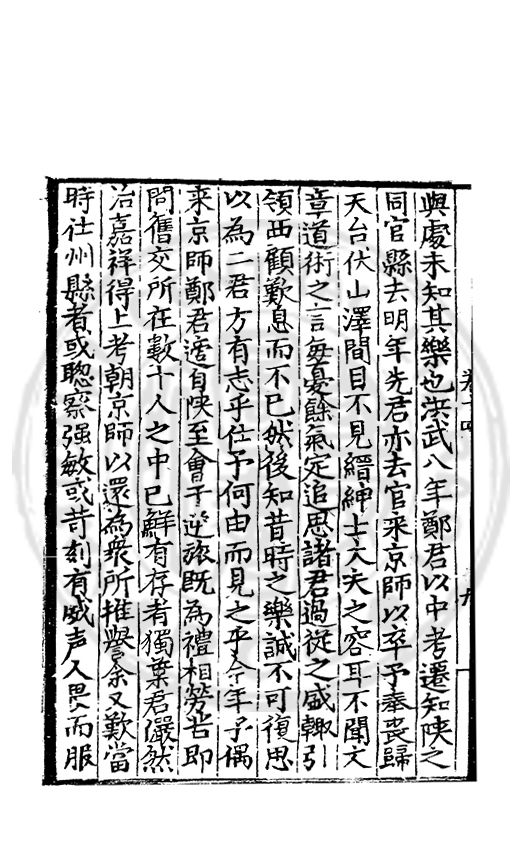 與處未知其樂也洪武八年鄭君以中考遷知陝之
同官縣去明年先君亦去官來京師以卒予奉喪歸
天台伏山澤間目不見縉紳士大夫之容耳不聞文
章道術之言每憂餘氣定追思諸君過從之盛輙引
領西顧歎息而不已然後知昔時之樂誠不可復思
以為二君方有志乎仕予何由而見之乎今年予偶
来京師鄭君適自陕至會于逆旅既為禮相勞苦即
問舊交所在數十人之中已鮮有存者獨葉君儼然
治嘉祥得上考朝京師以還為衆所推譽余又歎當
時仕州縣者或聦察强敏或苛刻有威声人畏而服